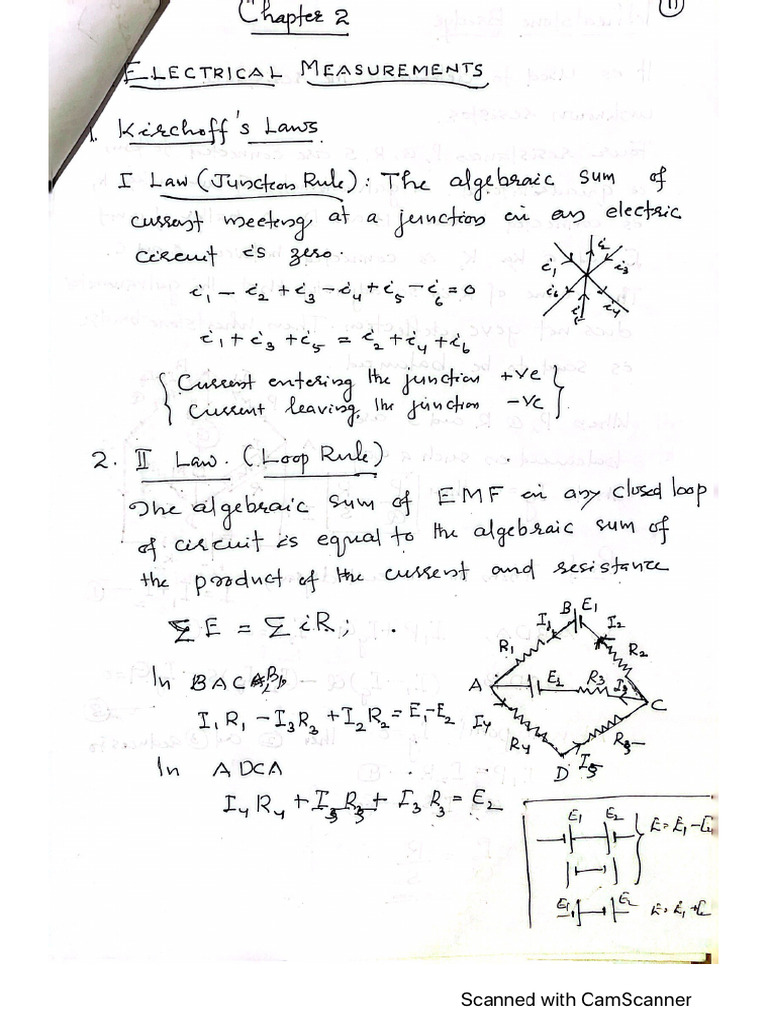 Chapter 2
11
ELECTRICAL MEASUREMENTS
1. Kirchoff's Laws
I Law (Junction Rule): The algebraic sum of
current meeting at a junction in an electric
circuit is zero.
i1 i2 i3
i6 i5 i4
i1 - i2 + i3 - i4 + i5 - i6 = 0
i1 + i3 + i5 = i2 + i4 + i6
{ Current entering the junction +ve }
{ Current leaving the junction -ve }
2. II Law. (Loop Rule)
The algebraic sum of EMF in any closed loop
of circuit is equal to the algebraic sum of
the product of the current and resistance
ΣE = ΣiR;
In BACAB,
I1R1 - I3R3 + I2R2 = E1-E2
In ADCA
I4R4 + I5R5 + I3R3 = E2
I1 B E1 I2
R1 R2
A E2 R3 I3 C
I4 R4 D I5 R5
E1 E2 E = E1-E2
E1 E2 E = E1+E2
Scanned with CamScanner